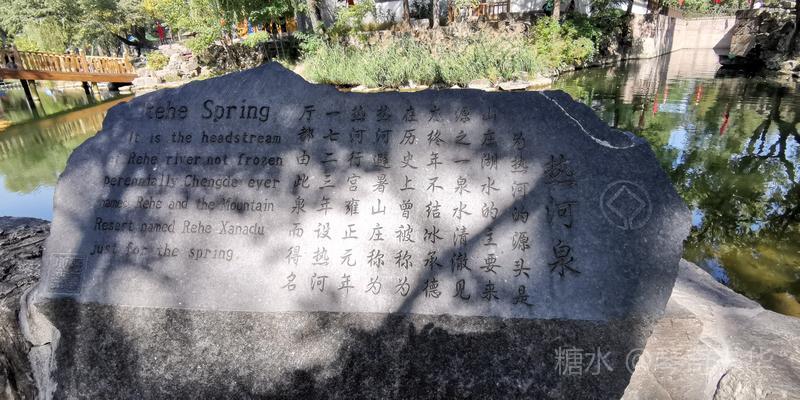 Rehe Spring
It is the headstream
of Rehe river.not frozen
perennially Chengde ever
names Rehe and the Mountain
Resort named Rehe Xanadu
just for the spring.
热河泉
为热河的源头是
山庄湖水的主要来
源之一泉水清澈见
底终年不结冰承德
在历史上曾被称为
热河避暑山庄称为
热河行宫雍正元年
一七二三年设热河
厅都由此泉而得名
糖水 @